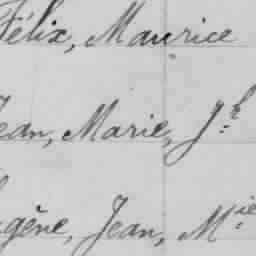 Félix, Maurice
Jean, Marie, J.h
Eugène, Jean, M.ie